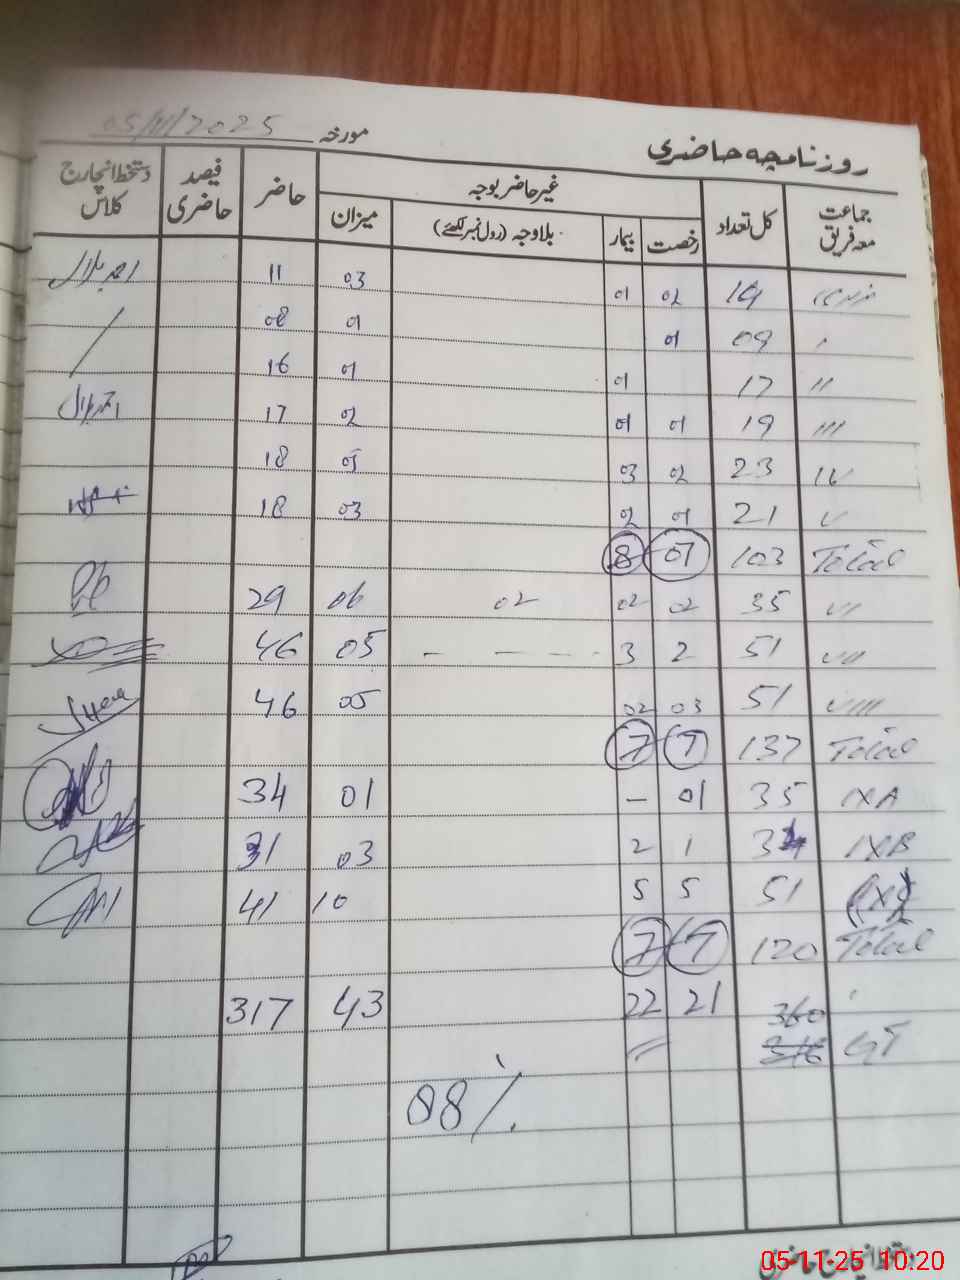 روزنامچہ حاضری مورخہ 05/11/2025
جماعت معہ فریق کل تعداد غیر حاضر بوجہ حاضر فیصد حاضری دستخط انچارج کلاس
رخصت بیمار بلاوجہ (رول نمبر لکھئے) میزان
14 02 01 03 11 احمد بلال
ا 09 01 01 08
اا 17 01 01 16
ااا 19 01 01 02 17 احمد بلال
IV 23 02 03 05 18
V 21 01 02 03 18
Total 103 07 8
VI 35 02 02 02 06 29
VII 51 2 3 05 46
VIII 51 03 02 05 46
Total 137 7 7
IXA 35 01 - 01 34
IXB 34 1 2 03 31
51 5 5 10 41
Total 120 7 7
360 21 22 43 317
GT 316
88%
دستخط انچارج حاضری
05-11-25 10:20